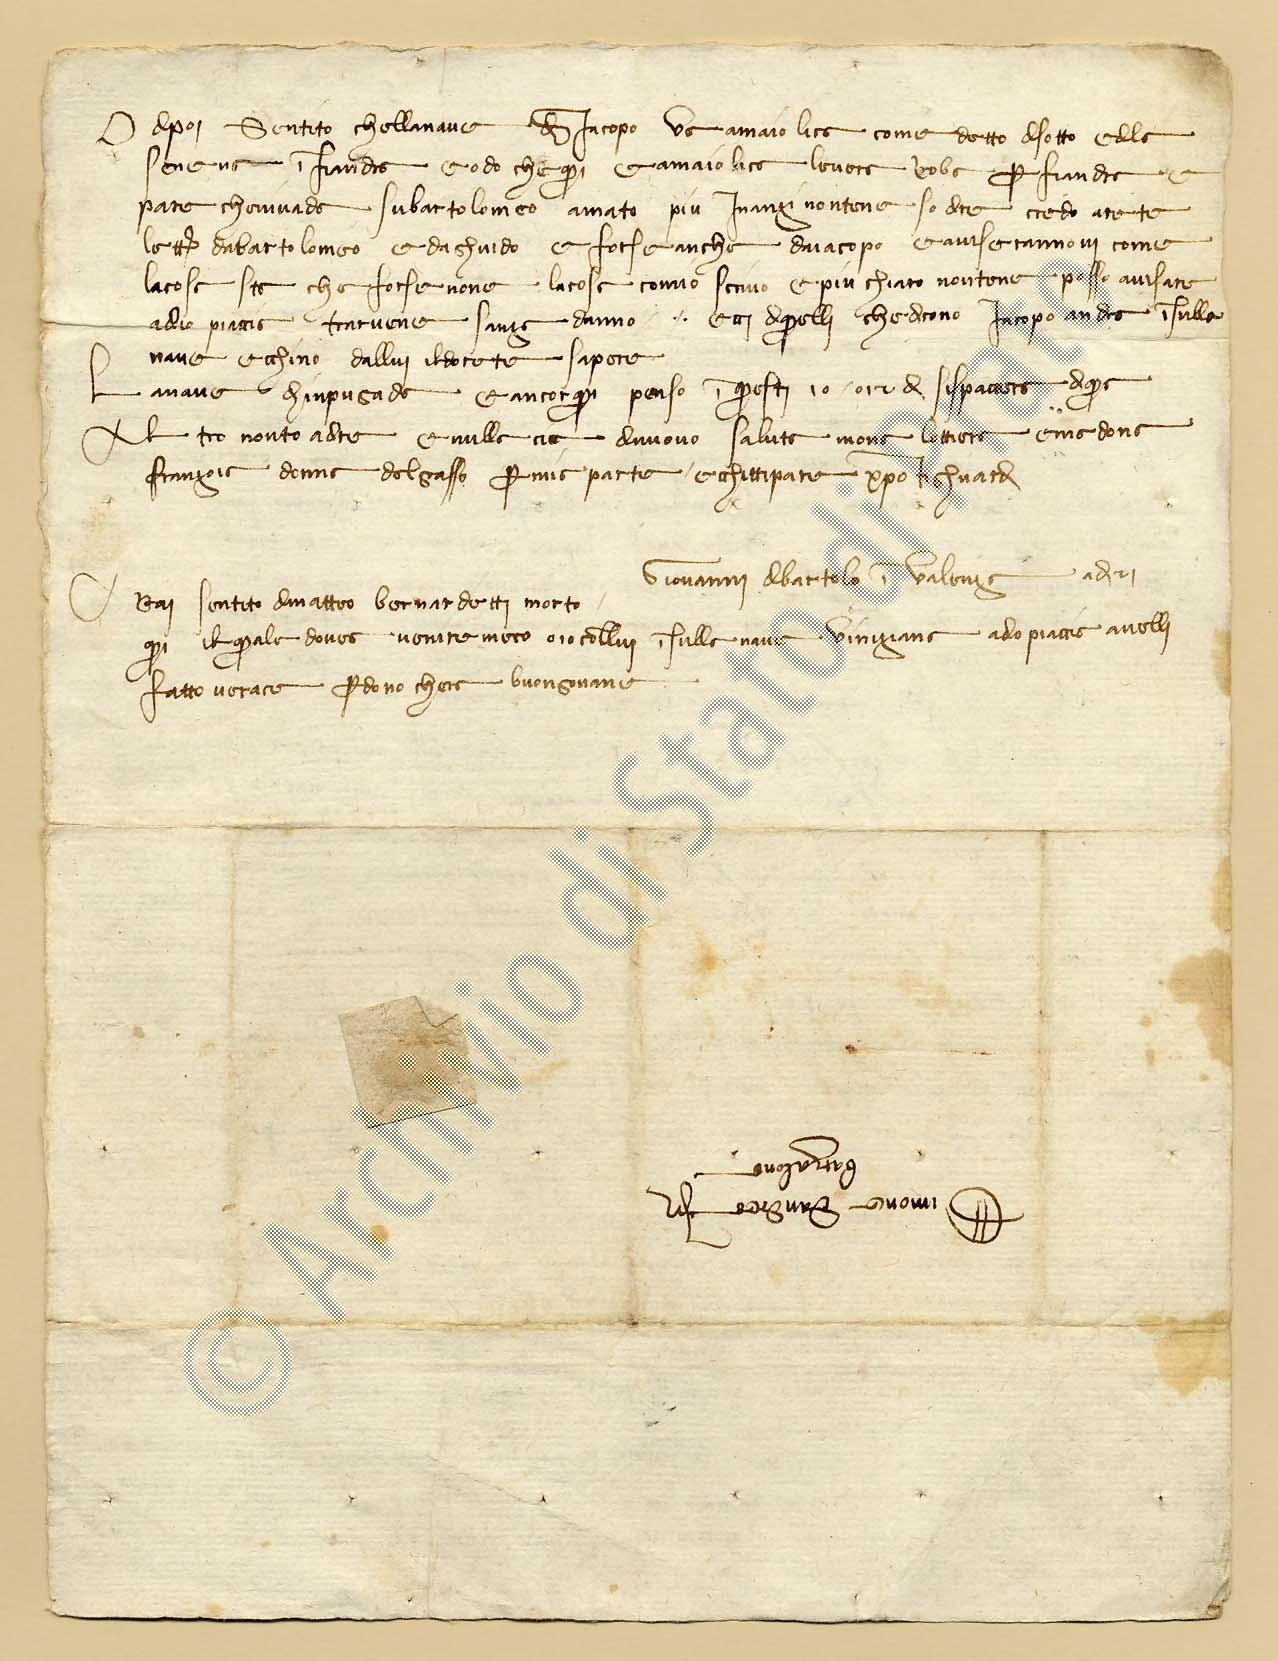 O dipoi sentito chella nave di Jacopo va a maiolica come detto disotto e della
se ne va in fiandra e odo che qui e a maiolica levera roba per fiandra e
pare che ni vada su bartolomeo amato piu Inanzi non te ne so dire credo arete
lettera da bartolomeo e da ghuido e forse anche da iacopo e aviserannovi come
la cosa sta che forse none la cosa comio scrivo e piu chiaro non te ne posso avisare
a dio piaccia trarvene sanza danno ecci di quelli che dicono Jacopo andra in sulla
nave ecchino dallui il dovete sapere
La nave chinpugada e ancor qui penso in questi 10 o 12 dì si spaccera di qua
Altro non to a dire e nulla cia di nuovo saluta mona lottiera e mª dona
franzois donna del gasso per mia parte e chitti pare xpo ti ghuardi
Giovanni di bartolo in valenza a dì 21
Rai sentito di matteo bernardetti morto
qui il quale dovea venire meco o io collui in sulla nave vinizians a dio piaccia avelli
fatto verace perdono chera buon giovane
mona
barzalona